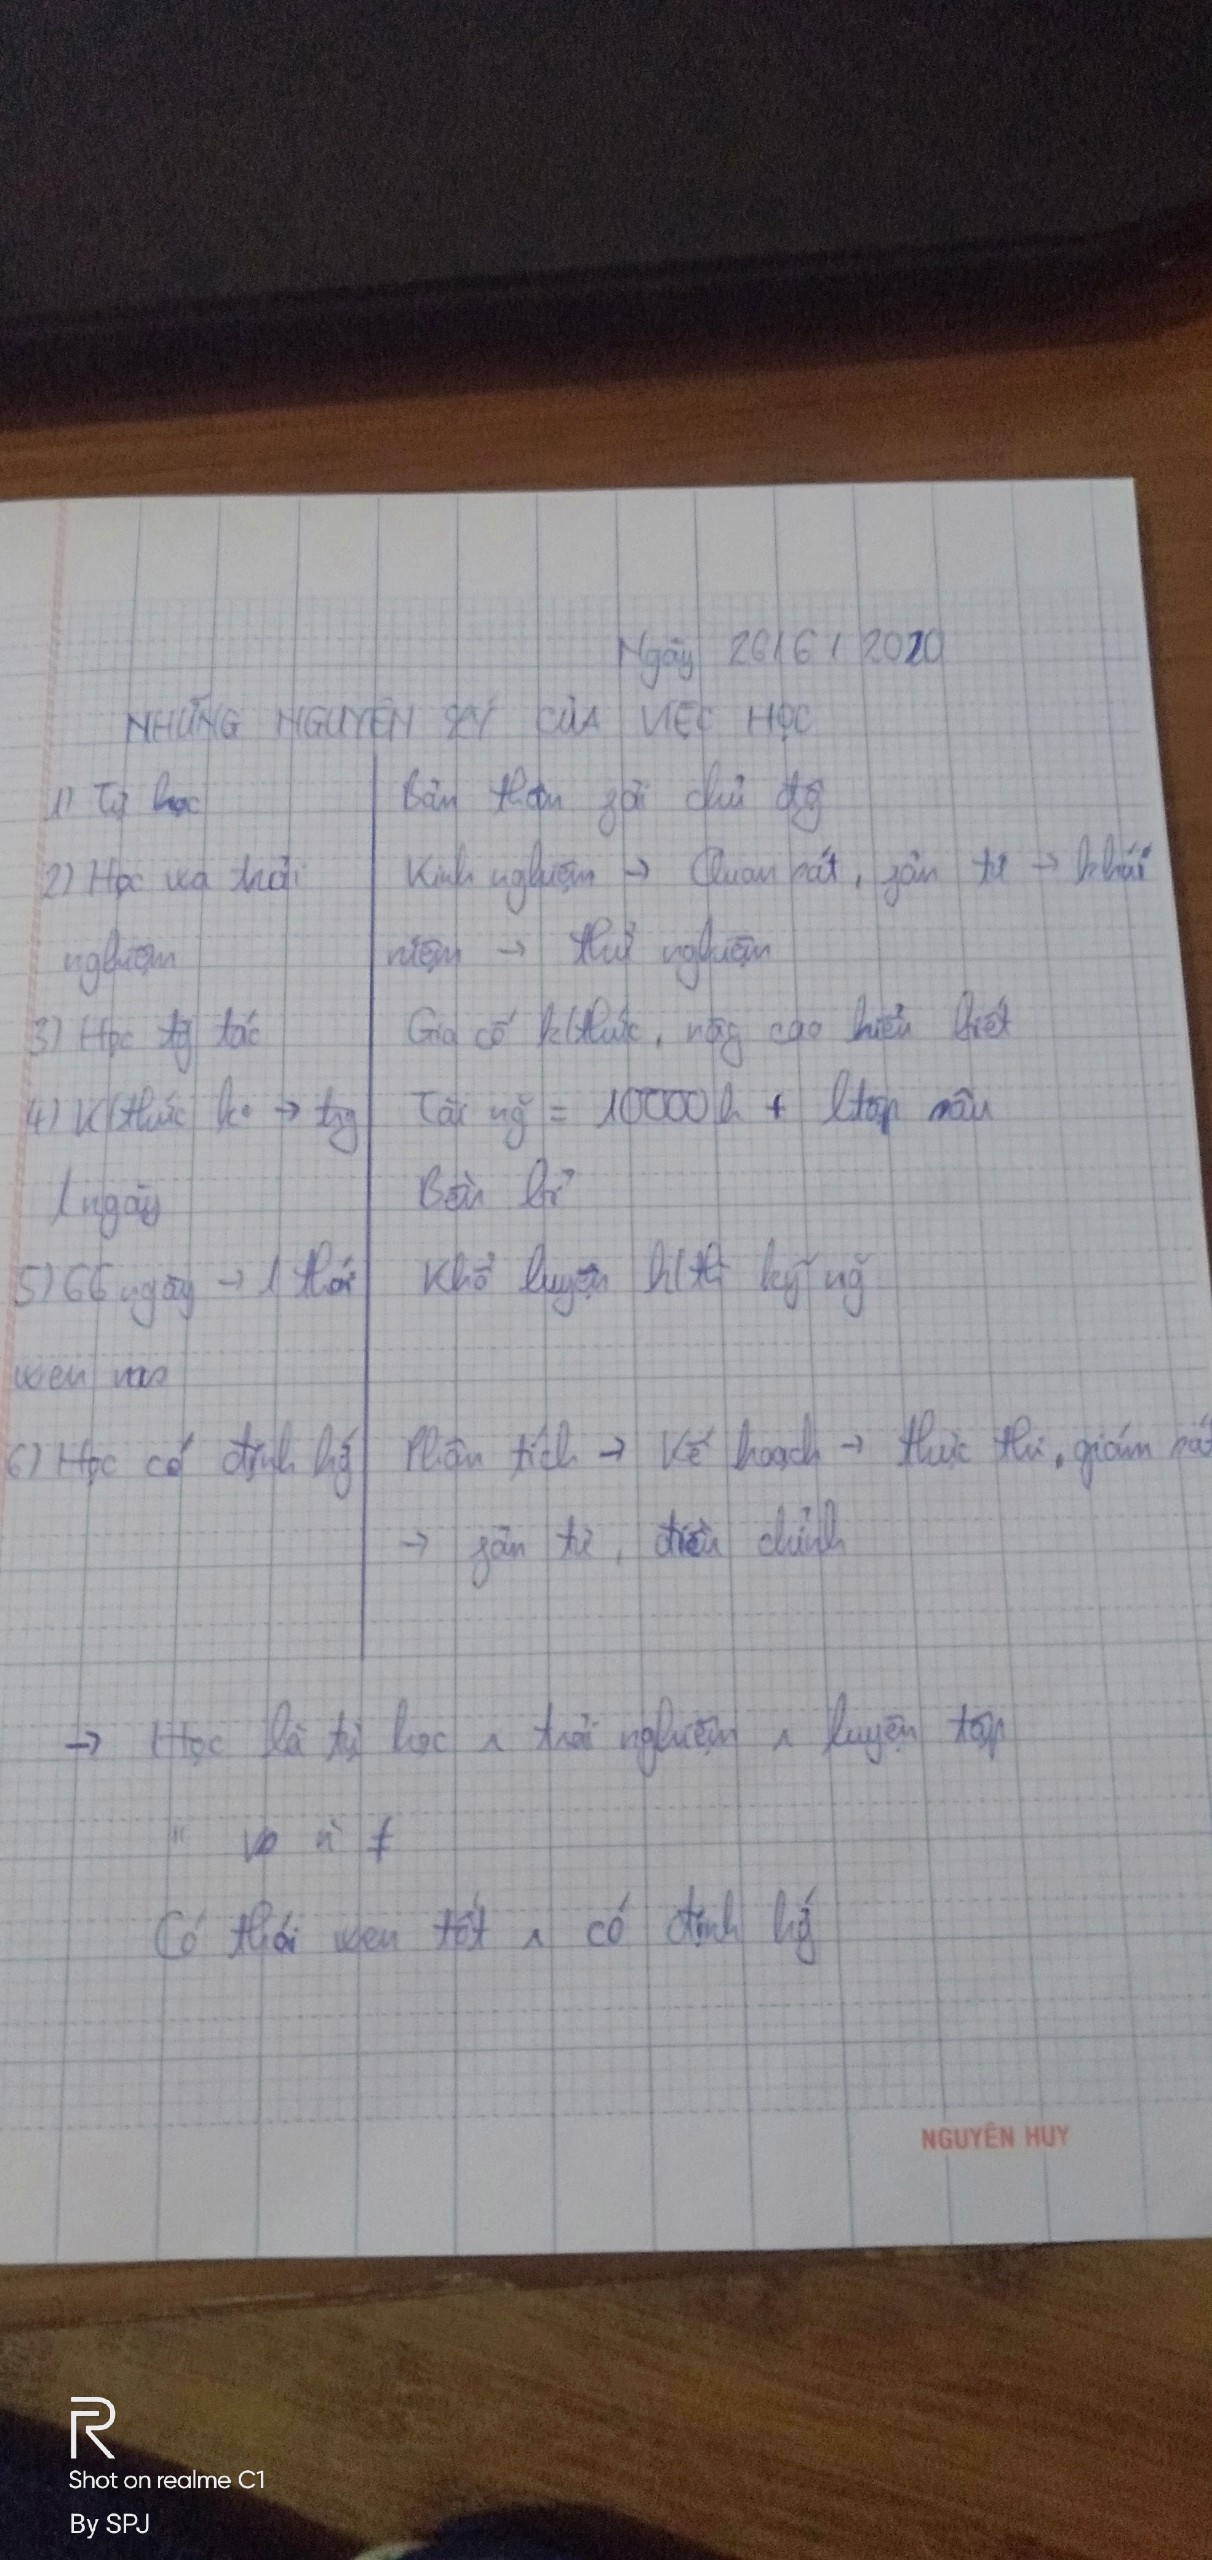 Ngày 26/6/2020
NHỮNG NGUYÊN LÝ CỦA VIỆC HỌC
1) Tự học Bản thân fải chủ độ
2) Học wa trải Kinh nghiệm → Quan sát, fản tư → khái
nghiệm niệm → thử nghiệm
3) Học tg tác Gia cố k/thức, nâg cao hiểu biết
4) K/thức ko → trg Tài ng = 10000h + ltập sâu
1 ngày Bền bỉ
5) 66 ngày → 1 thói Khổ luyện h/th kỹ ng
wen
6) Học có định hg Phân tích → Kế hoạch → thực thi, giám sát
→ fản tư, điều chỉnh
→ Học là tự học ^ trải nghiệm ^ luyện tập
"
Có thói wen tốt ^ có định hg
NGUYÊN HUY
Shot on realme C1
By SPJ